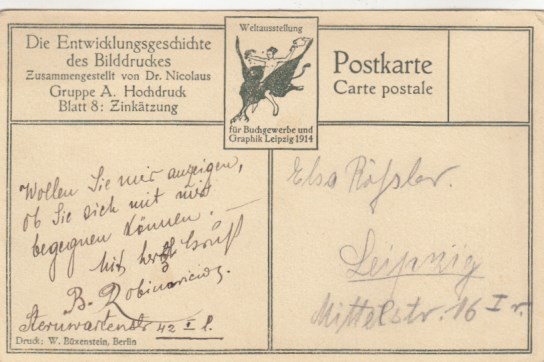 Die Entwicklungsgeschichte
des Bilddruckes
Zusammengestellt von Dr. Nicolaus
Gruppe A. Hochdruck
Blatt 8: Zinkätzung
Weltausstellung
für Buchgewerbe und
Graphik Leipzig 1914
Postkarte
Carte postale
Wollen Sie mir anzeigen,
ob Sie sich mit mir
begegnen können. –
Mit herzl Gruß
B.
Sternwartenstr 42 I l.
Druck: W. Büxenstein, Berlin
Elsa Rößler.
Leipzig
Mittelstr. 16 I r.